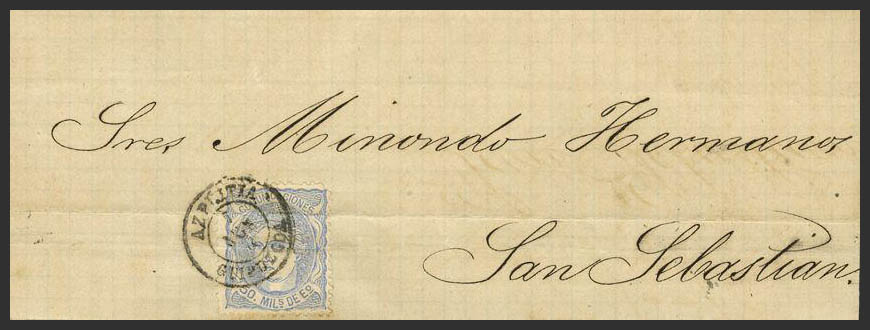 Sres Minondo Hermanos
San Sebastian.
AZPEITIA
GUIPUZCOA
COMUNICACIONES
50. MILS DE Eº